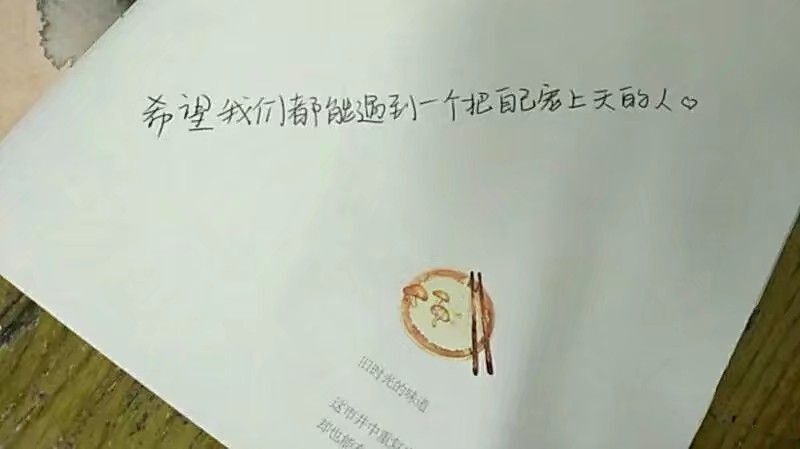 希望我们都能遇到一个把自己宠上天的人♡
旧时光的味道
这市井中重复
却也能